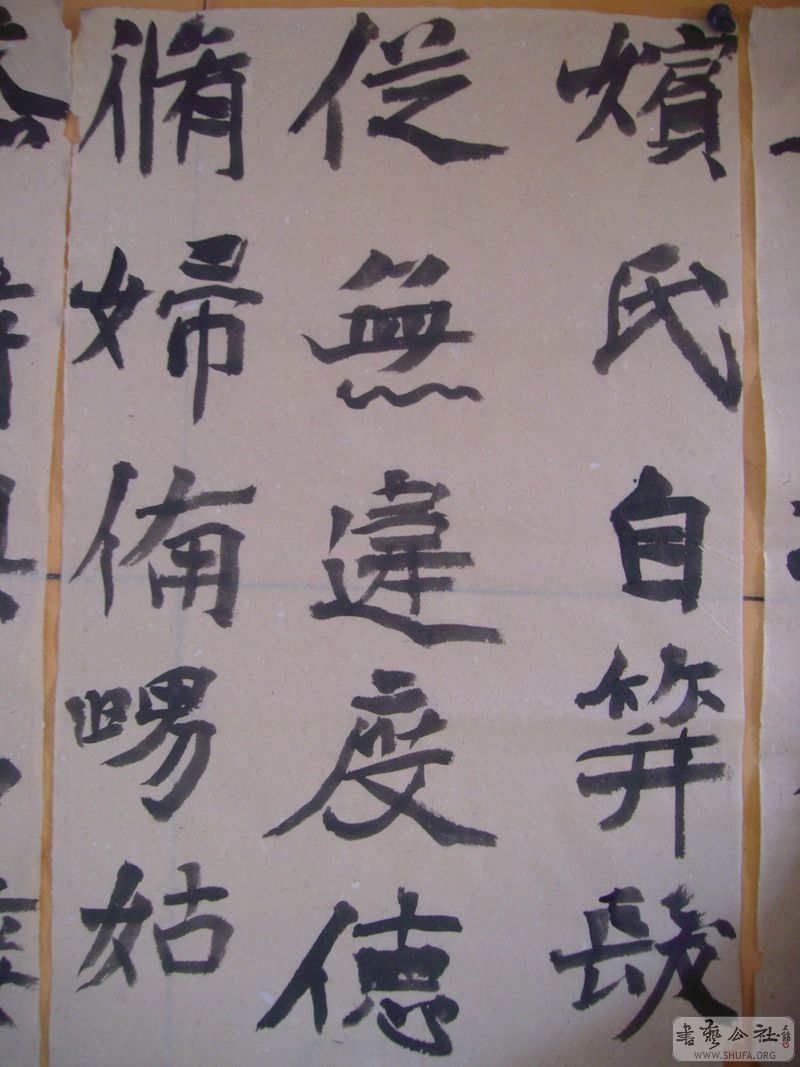 嬪氏自笄髮
從無違度德
脩婦備舅姑
書藝公社
WWW.SHUFA.ORG